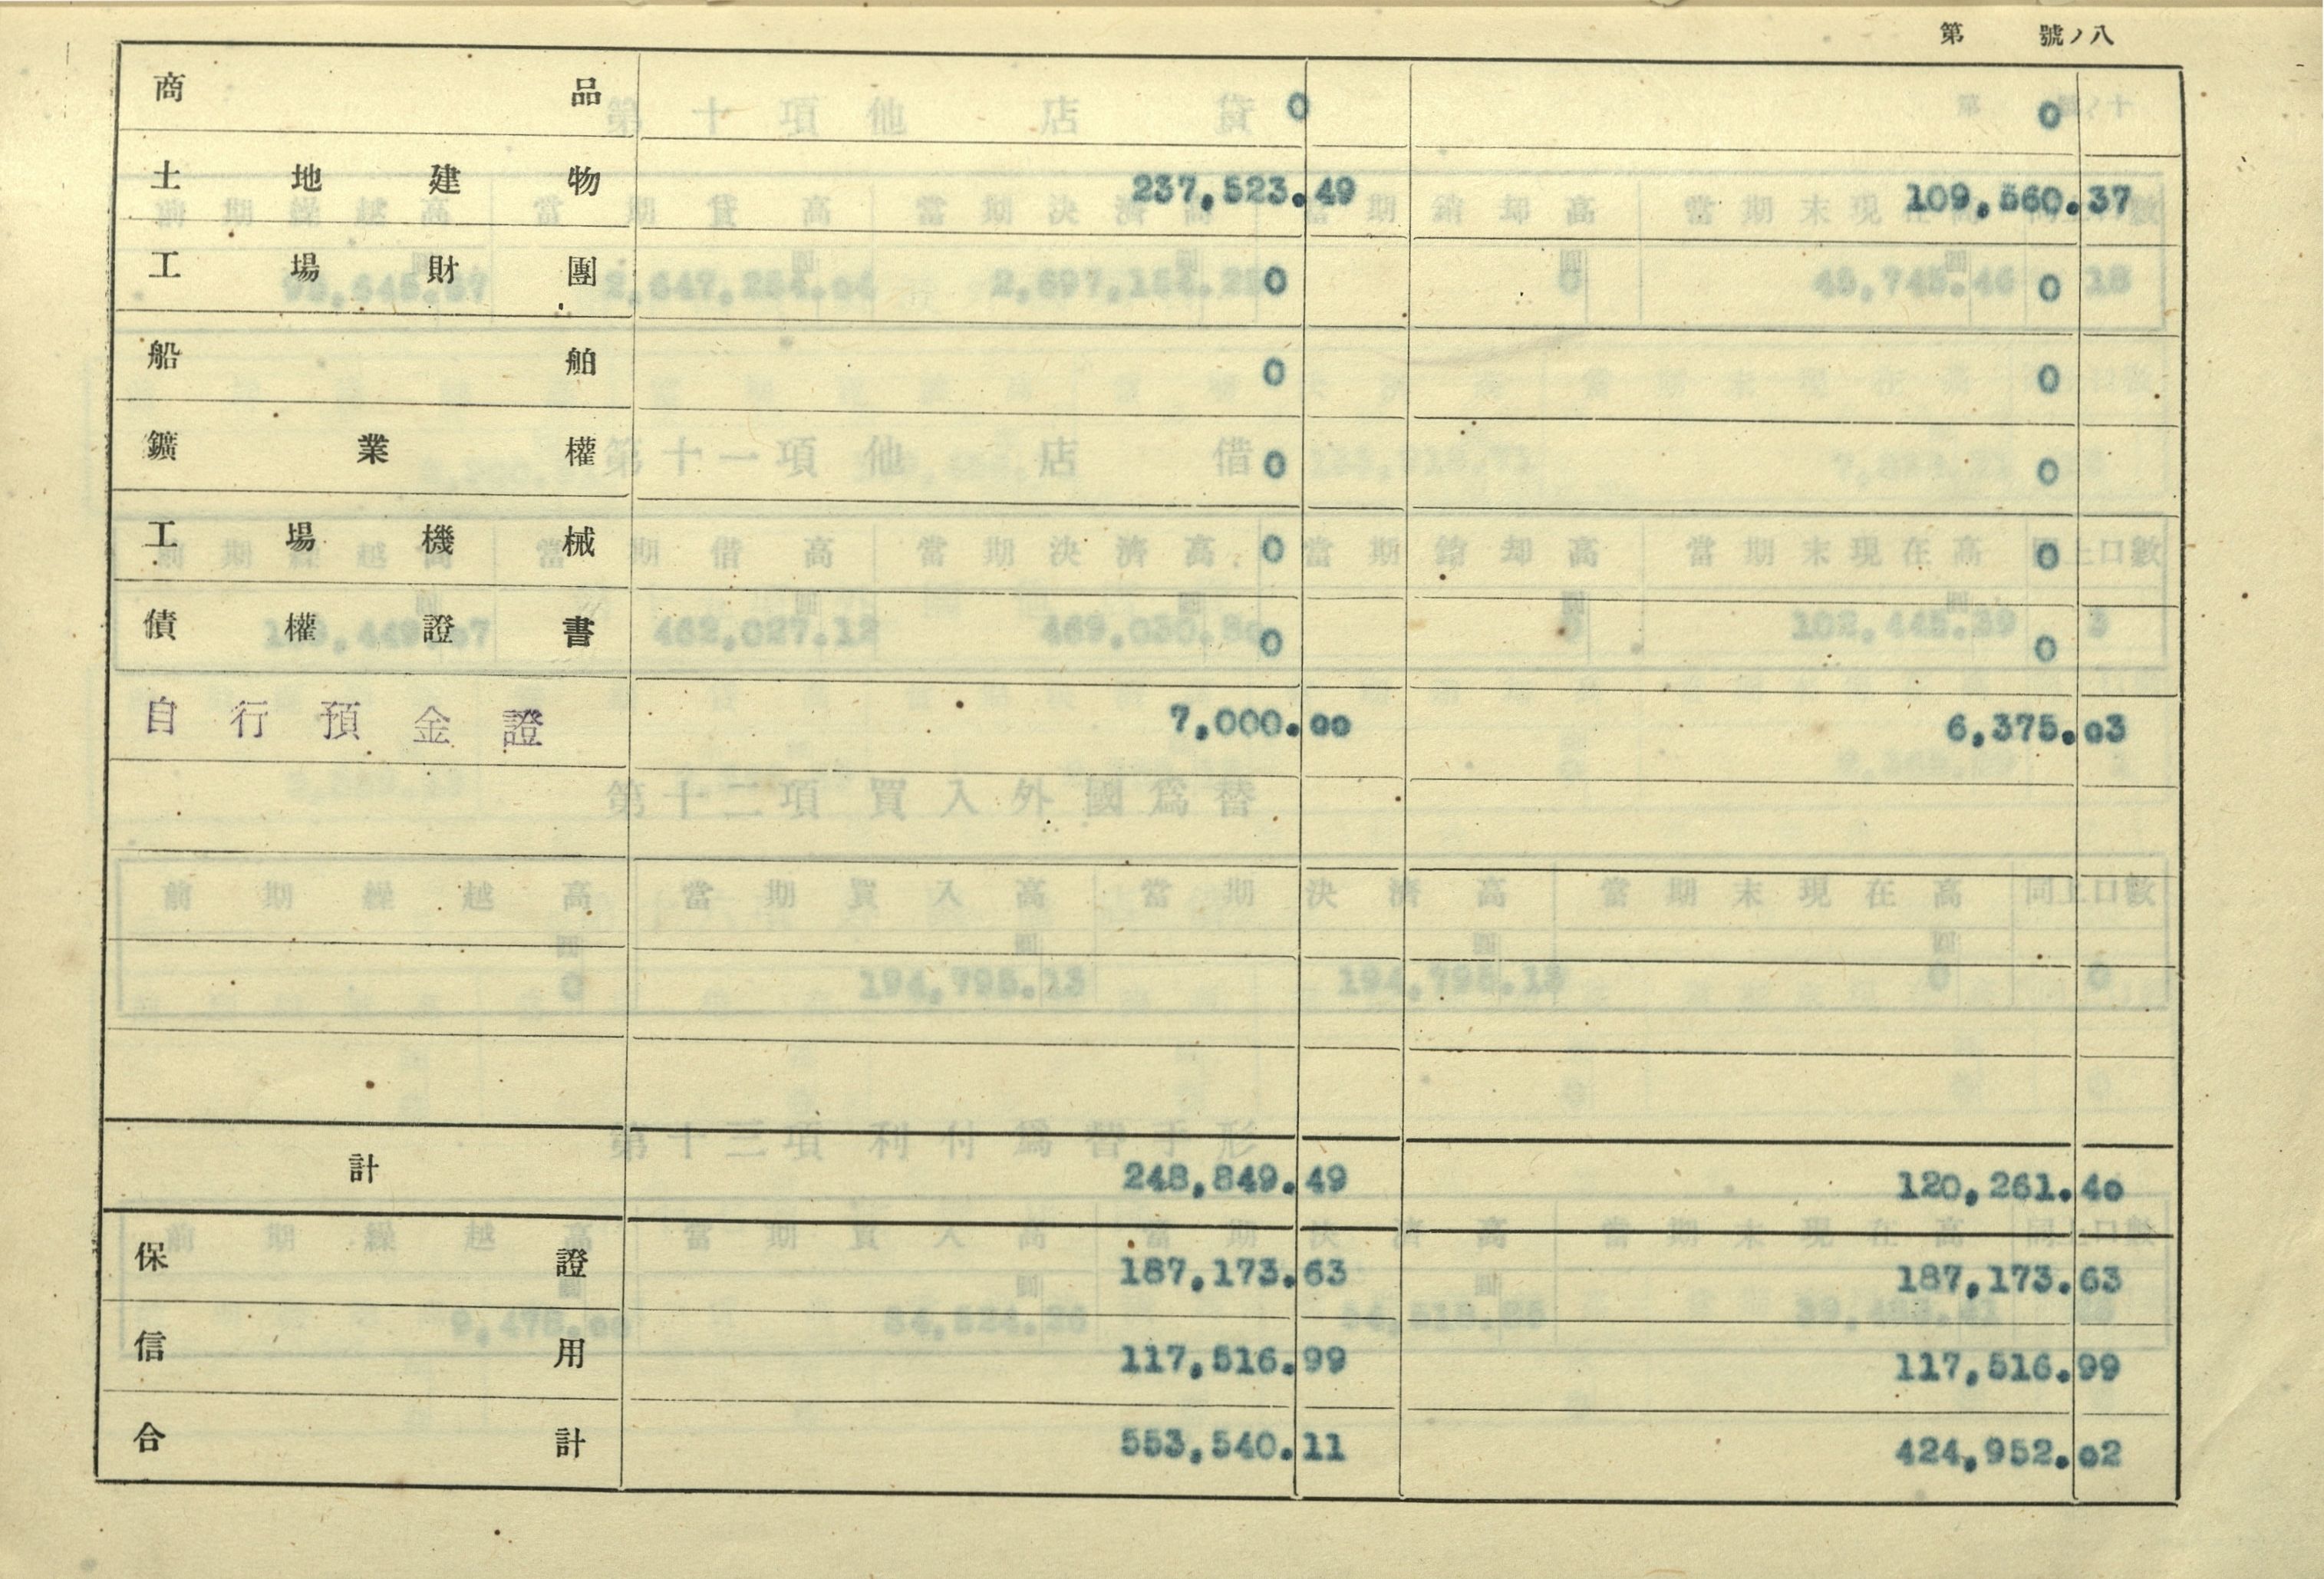 第 號ノ八
商品 0 0
土地建物 237,523.49 109,560.37
工場財團 0 0
船舶 0 0
鑛業權 0 0
工場機械 0 0
債權證書 0 0
自行預金證 7,000.00 6,375.03
計 248,849.49 120,261.40
保證 187,173.63 187,173.63
信用 117,516.99 117,516.99
合計 553,540.11 424,952.02